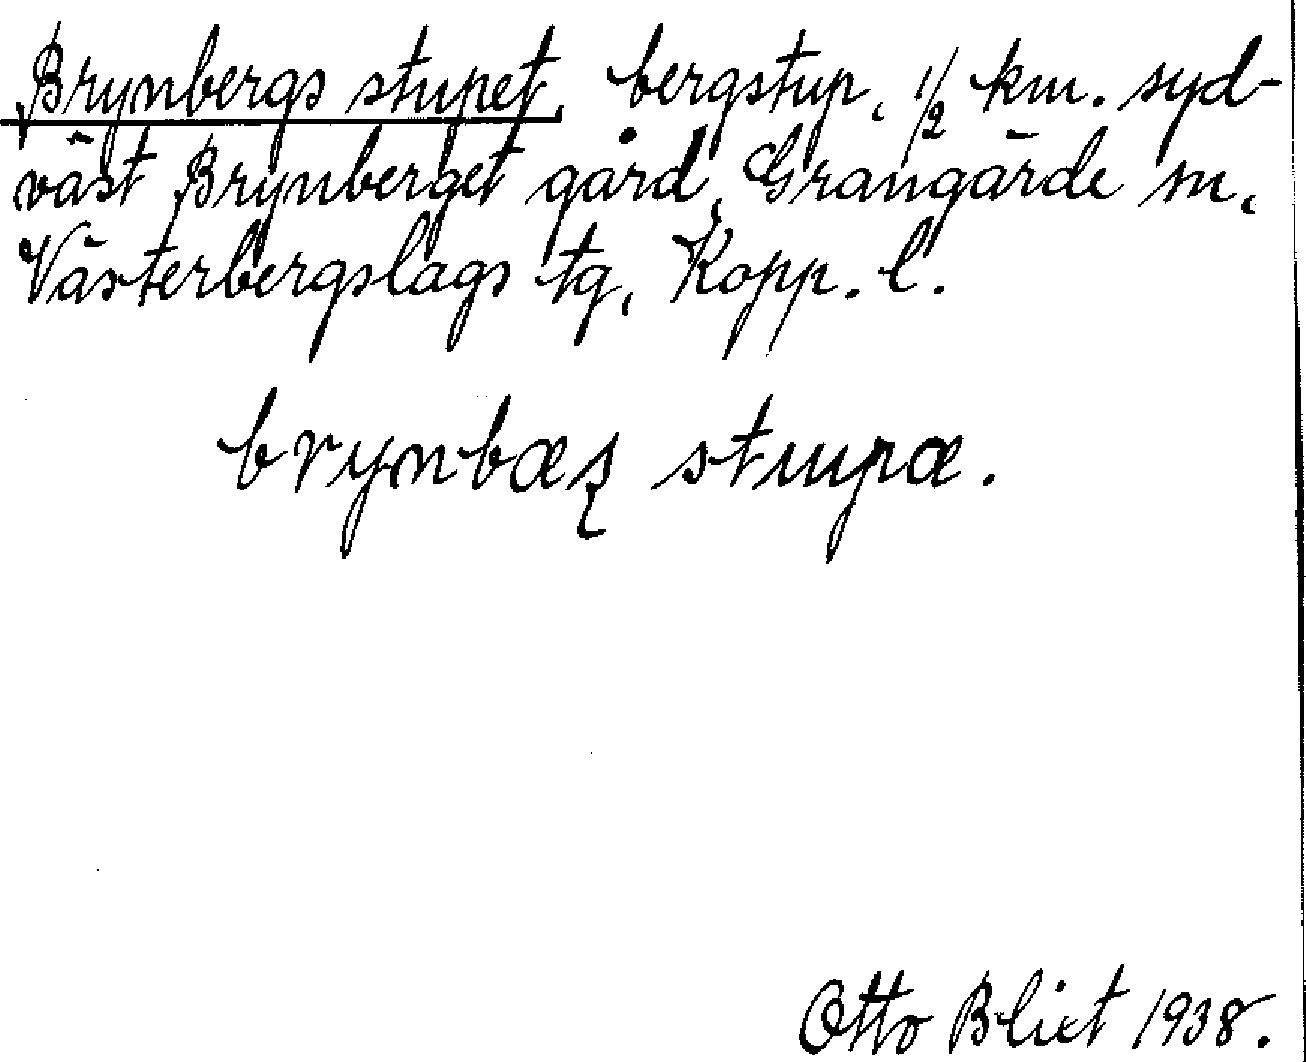 Brynbergs stupet, bergstup, 1/2 km. syd-
väst Brynberget gård, Grangärde sn,
Västerbergslags tg, Kopp. l.
brynbæʂ stupæ.
Otto Blixt 1938.